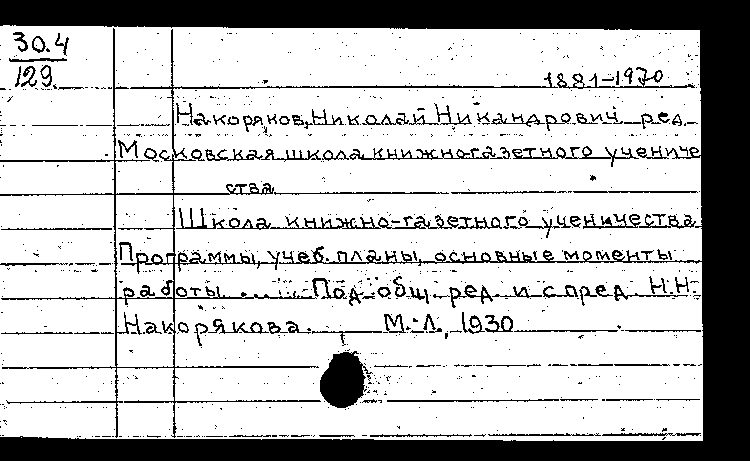 30.4
129
1881-1970
Накоряков, Николай Никандрович ред.
Московская школа книжно-газетного учениче
ства
Школа книжно-газетного ученичества
Программы, учеб. планы, основные моменты
работы .... Под общ. ред. и с пред. Н.Н.
Накорякова. М.-Л., 1930